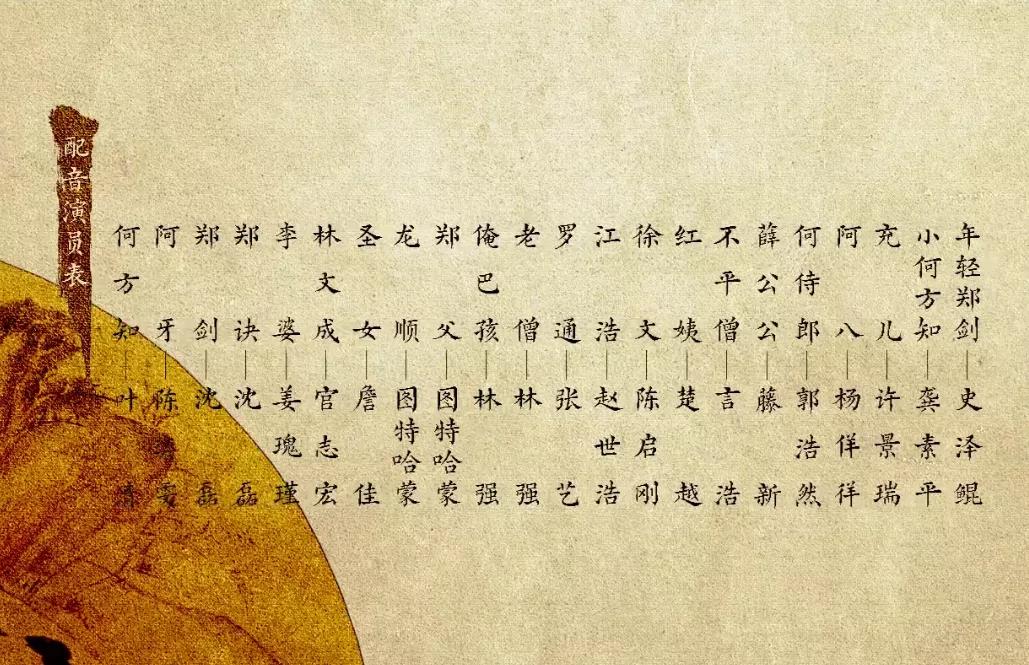 配音演员表
何方知—叶
阿牙—陈 雯
郑剑—沈磊
郑诀—沈磊
李婆—姜瑰瑾
林文成—官志宏
圣女—詹佳
龙顺—图特哈蒙
郑父—图特哈蒙
俺巴孩—林强
老僧—林强
罗通—张艺
江浩—赵世浩
徐文—陈启刚
红姨—楚越
不平僧—言浩
薛公公—藤新
何待郎—郭浩然
阿八—杨佯徉
充儿—许景瑞
小何方知—龚素平
年轻郑剑—史泽鲲